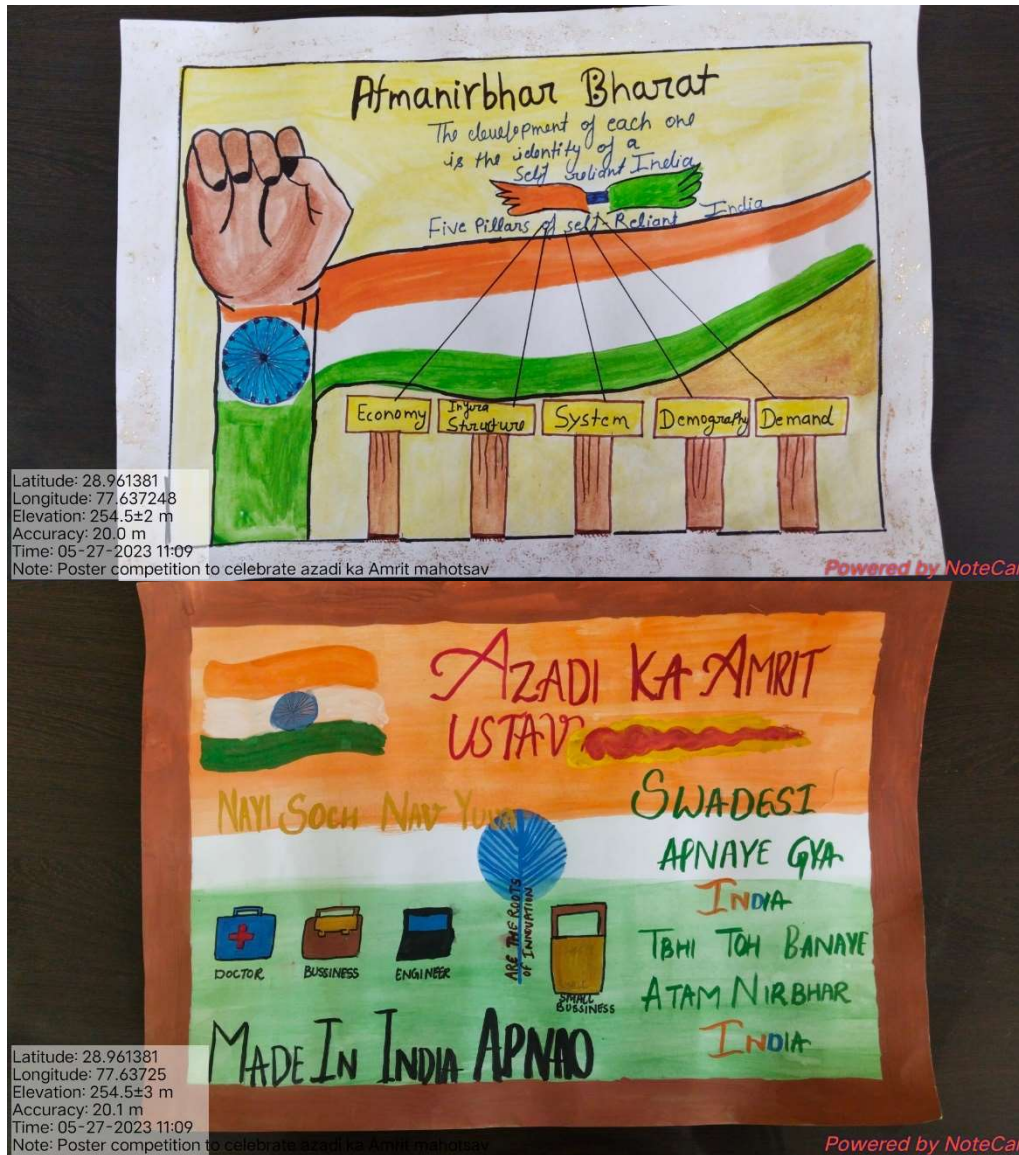 Atmanirbhar Bharat
The development of each one
is the identity of a
Self reliant India
Five Pillars of self-Reliant India
Economy
Infra
Structure
System
Demography
Demand
Latitude: 28.961381
Longitude: 77.637248
Elevation: 254.5±2 m
Accuracy: 20.0 m
Time: 05-27-2023 11:09
Note: Poster competition to celebrate azadi ka Amrit mahotsav
Powered by NoteCa
AZADI KA AMRIT
USTAV
NAYI SOCH NAV YUVA
SWADESI
APNAYE GYA
INDIA
TBHI TOH BANAYE
ATAM NIRBHAR
INDIA
ARE THE ROOTS
OF INNOVATION
DOCTOR
BUSSINESS
ENGINEER
SMALL
BUSSINESS
MADE IN INDIA APNAO
Latitude: 28.961381
Longitude: 77.63725
Elevation: 254.5±3 m
Accuracy: 20.1 m
Time: 05-27-2023 11:09
Note: Poster competition to celebrate azadi ka Amrit mahotsav
Powered by NoteCa